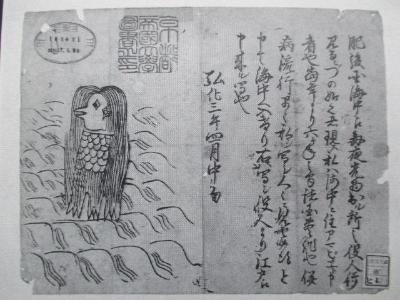 肥後国海中え毎夜光物出ル所之役人行
見るニづの如く者現ス私ハ海中ニ住アマビヱト申
者也当年より六ヶ年之間諸国豊作也併
病流行早々私写シ人々ニ見せ候得と
申て海中へ入けり右写シ役人より江戸え
申来ル写也
弘化三年四月中旬
京都
帝国大学
図書之印